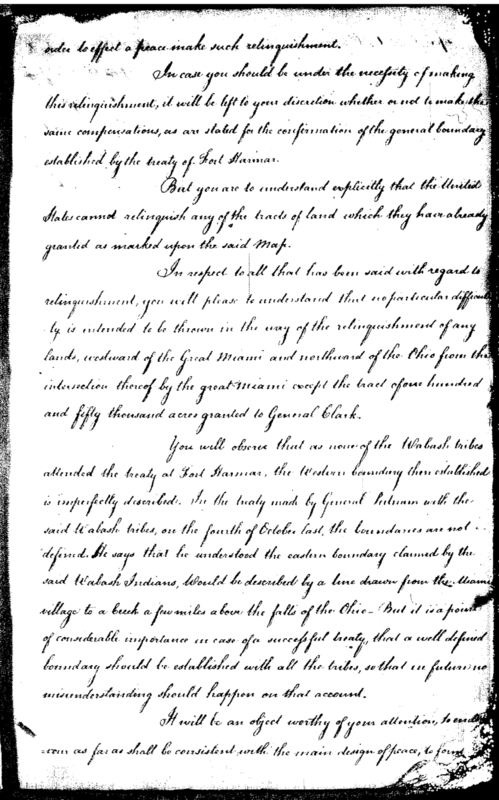 order to effect a peace make such relinquishment.
In case you should be under the necessity of making
this relinquishment, it will be left to your discretion whether or not to make the
same compensations, as are stated for the confirmation of the general boundary
established by the treaty of Fort Harmar.
But you are to understand explicitly that the United
States cannot relinquish any of the tracts of land which they have already
granted as marked upon the said Map.
In respect to all that has been said with regard to
relinquishment, you will please to understand that no particular difficul
ty is intended to be thrown in the way of the relinquishment of any
lands, westward of the Great Miami and northward of the Ohio from the
intersection thereof by the great Miami except the tract of one hundred
and fifty thousand acres granted to General Clark.
You will observe that as none of the Wabash tribes
attended the treaty at Fort Harmar, the Western boundary then established
is imperfectly described. In the treaty made by General Putnam with the
said Wabash tribes, on the fourth of October last, the boundaries are not
defined. He says that he understood the eastern boundary claimed by the
said Wabash Indians, would be described by a line drawn from the Miami
village to a creek a few miles above the falls of the Ohio - But it is a point
of considerable importance in case of a successful treaty, that a well defined
boundary should be established with all the tribes, so that in future no
misunderstanding should happen on that account.
It will be an object worthy of your attention, to endea
vour as far as shall be consistent with the main design of peace, to form